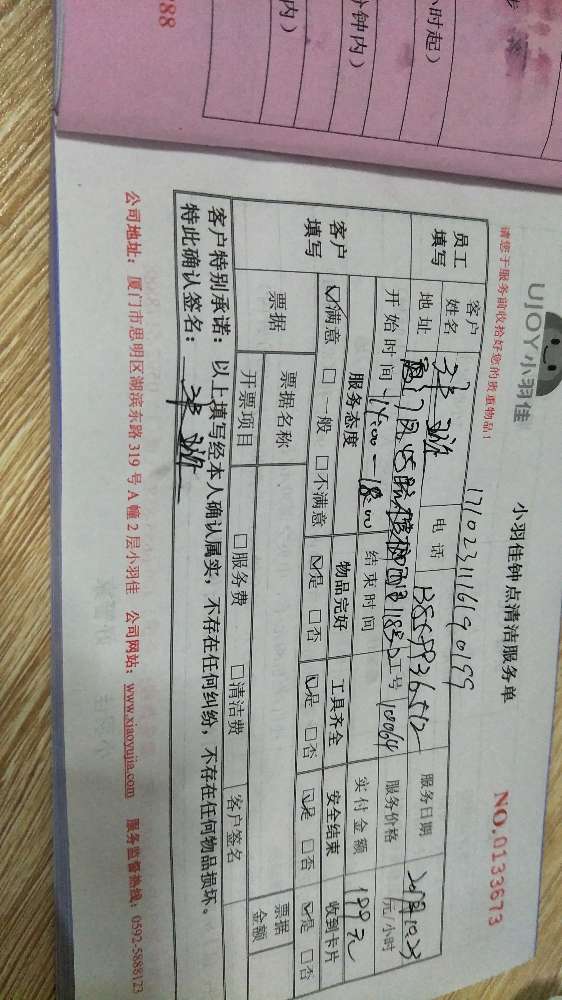 288
内）
分钟内）
小时起）
UJOY小羽佳
小羽佳钟点清洁服务单
NO.0133673
请您于服务前收拾好您的贵重物品！
1710231116190199
员工填写
客户姓名
电话
服务日期
地址
工号 10064
服务价格
元/小时
开始时间 14:00-18:00
结束时间
实付金额 199元
客户填写
服务态度
物品完好
工具齐全
安全结束
收到卡片
☑满意 □一般 □不满意
☑是 □否
☑是 □否
☑是 □否
☑是 □否
票据
票据名称
客户签名
票据金额
开票项目
□服务费 □清洁费
客户特别承诺：以上填写经本人确认属实，不存在任何纠纷，不存在任何物品损坏。
特此确认签名：
公司地址：厦门市思明区湖滨东路 319 号 A 幢 2 层小羽佳 公司网站：www.xiaoyujia.com 服务监督热线：0592-5888123